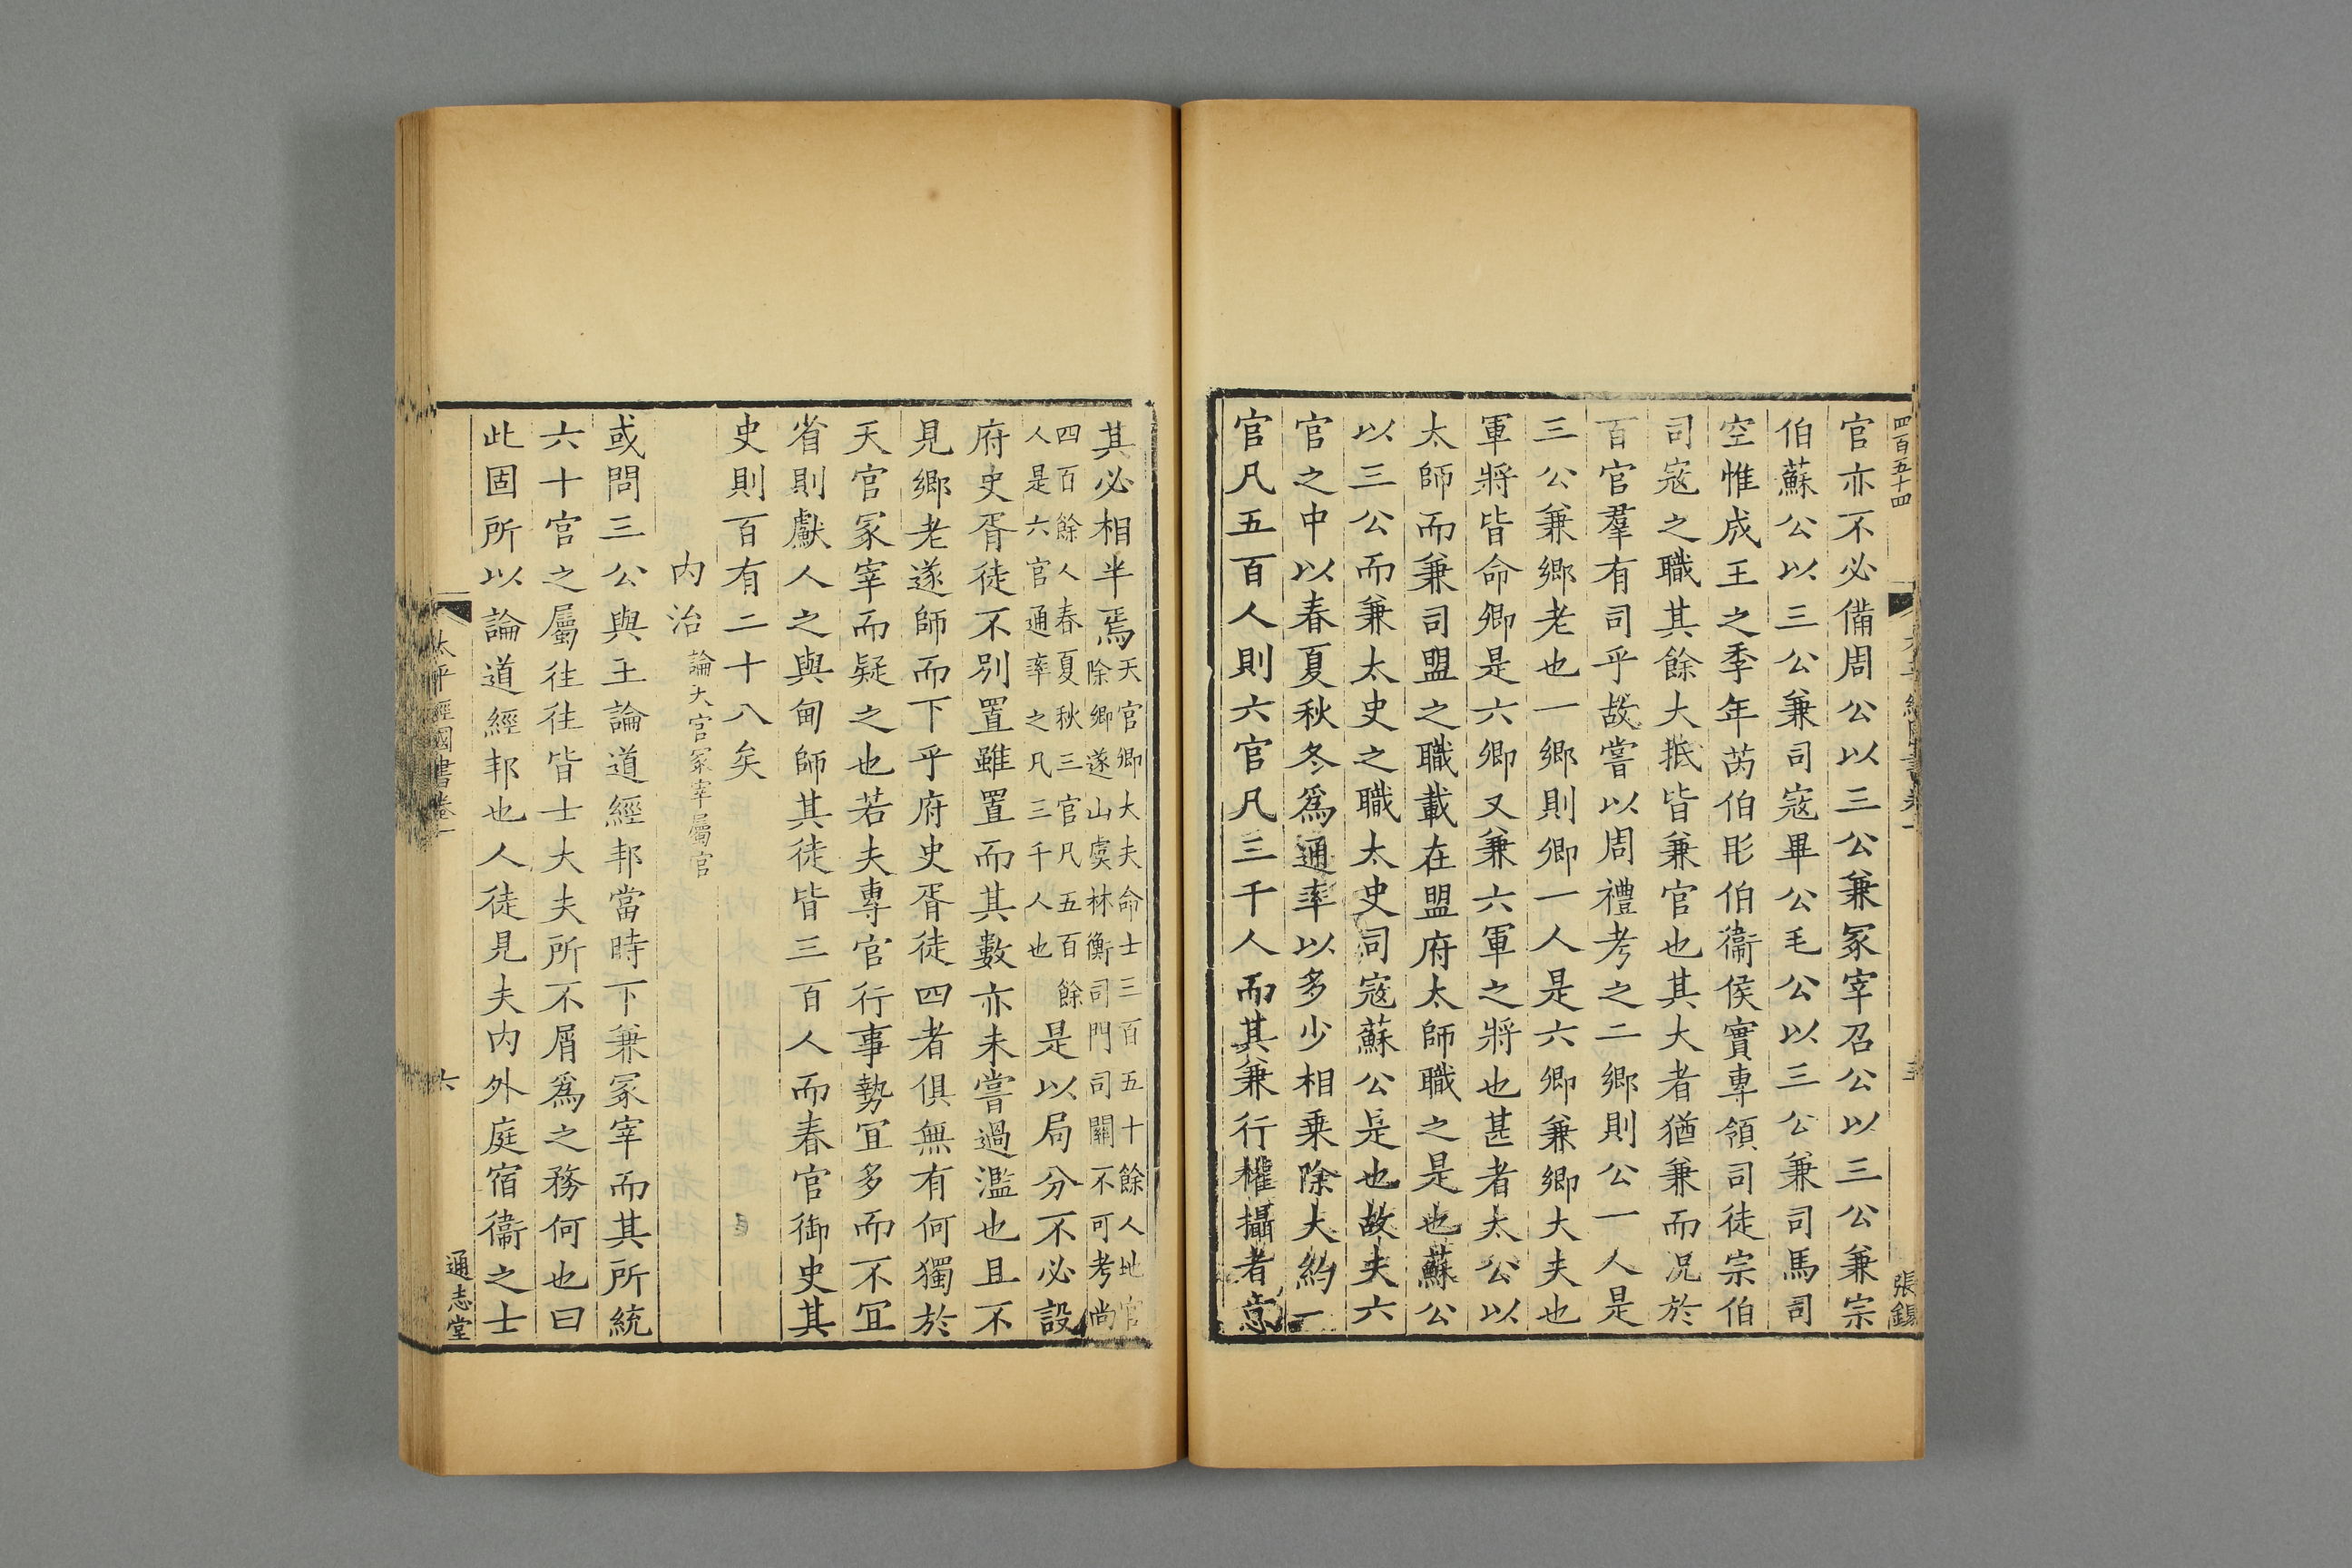 四百五十四
張錫
官亦不必備周公以三公兼冢宰召公以三公兼宗
伯蘇公以三公兼司寇畢公毛公以三公兼司馬司
空惟成王之季年芮伯彤伯衞侯實專領司徒宗伯
司寇之職其餘大抵皆兼官也其大者猶兼而况於
百官羣有司乎故嘗以周禮考之二鄉則公一人是
三公兼鄉老也一鄉則卿一人是六卿兼鄉大夫也
軍將皆命卿是六卿又兼六軍之將也甚者太公以
太師而兼司盟之職載在盟府太師職之是也蘇公
以三公而兼太史之職太史司寇蘇公是也故夫六
官之中以春夏秋冬爲通率以多少相乗除大約一
官凡五百人則六官凡三千人而其兼行權攝者意
其必相半焉天官卿大夫命士三百五十餘人地官
除鄉遂山虞林衡司門司關不可考尚
四百餘人春夏秋三官凡五百餘
人是六官通率之凡三千人也是以局分不必設
府史胥徒不別置雖置而其數亦未嘗過濫也且不
見鄉老遂師而下乎府史胥徒四者俱無有何獨於
天官冢宰而疑之也若夫專官行事勢冝多而不冝
省則獻人之與甸師其徒皆三百人而春官御史其
史則百有二十八矣
内治論天官冢宰屬官
或問三公與王論道經邦當時下兼冢宰而其所統
六十官之屬往往皆士大夫所不屑爲之務何也曰
此固所以論道經邦也人徒見夫内外庭宿衞之士
太平經國書卷一
六
通志堂